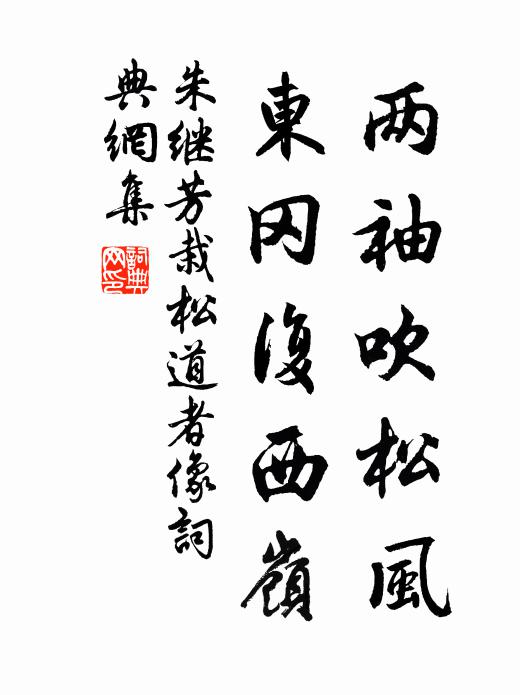 两袖吹松風
東冈復西嶺
朱继芳栽松道者像詞
典網集
詞典网印